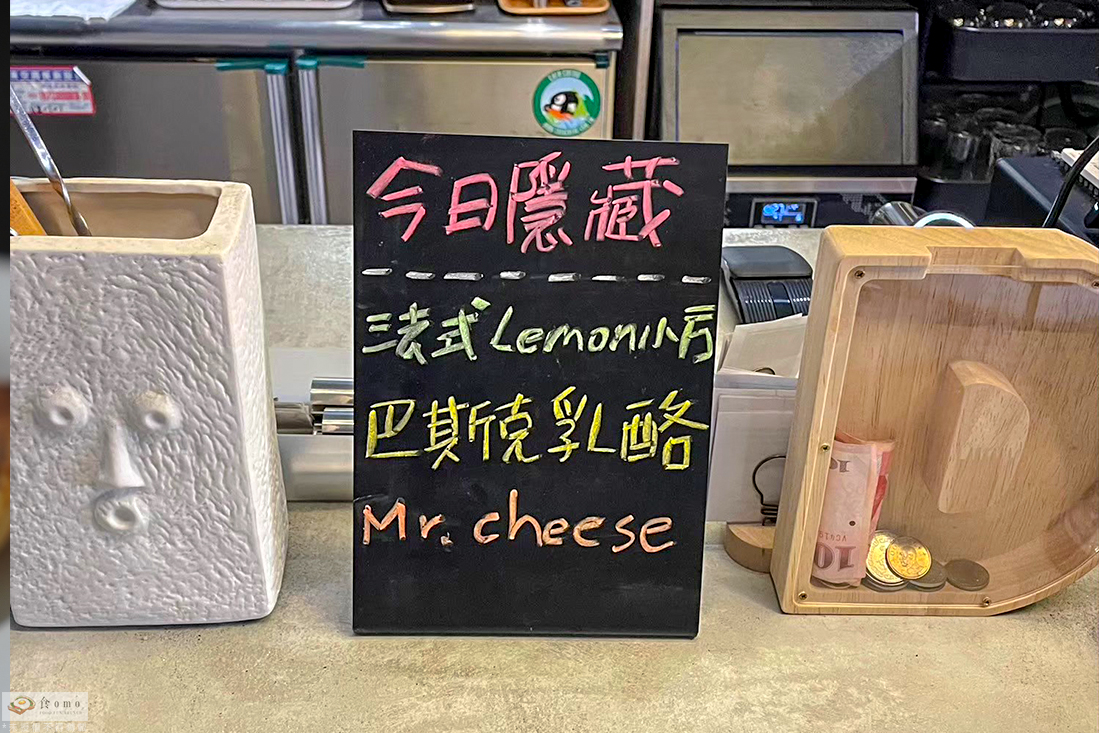 今日隱藏
法式Lemon小方
巴斯克乳酪
Mr. cheese
食omo